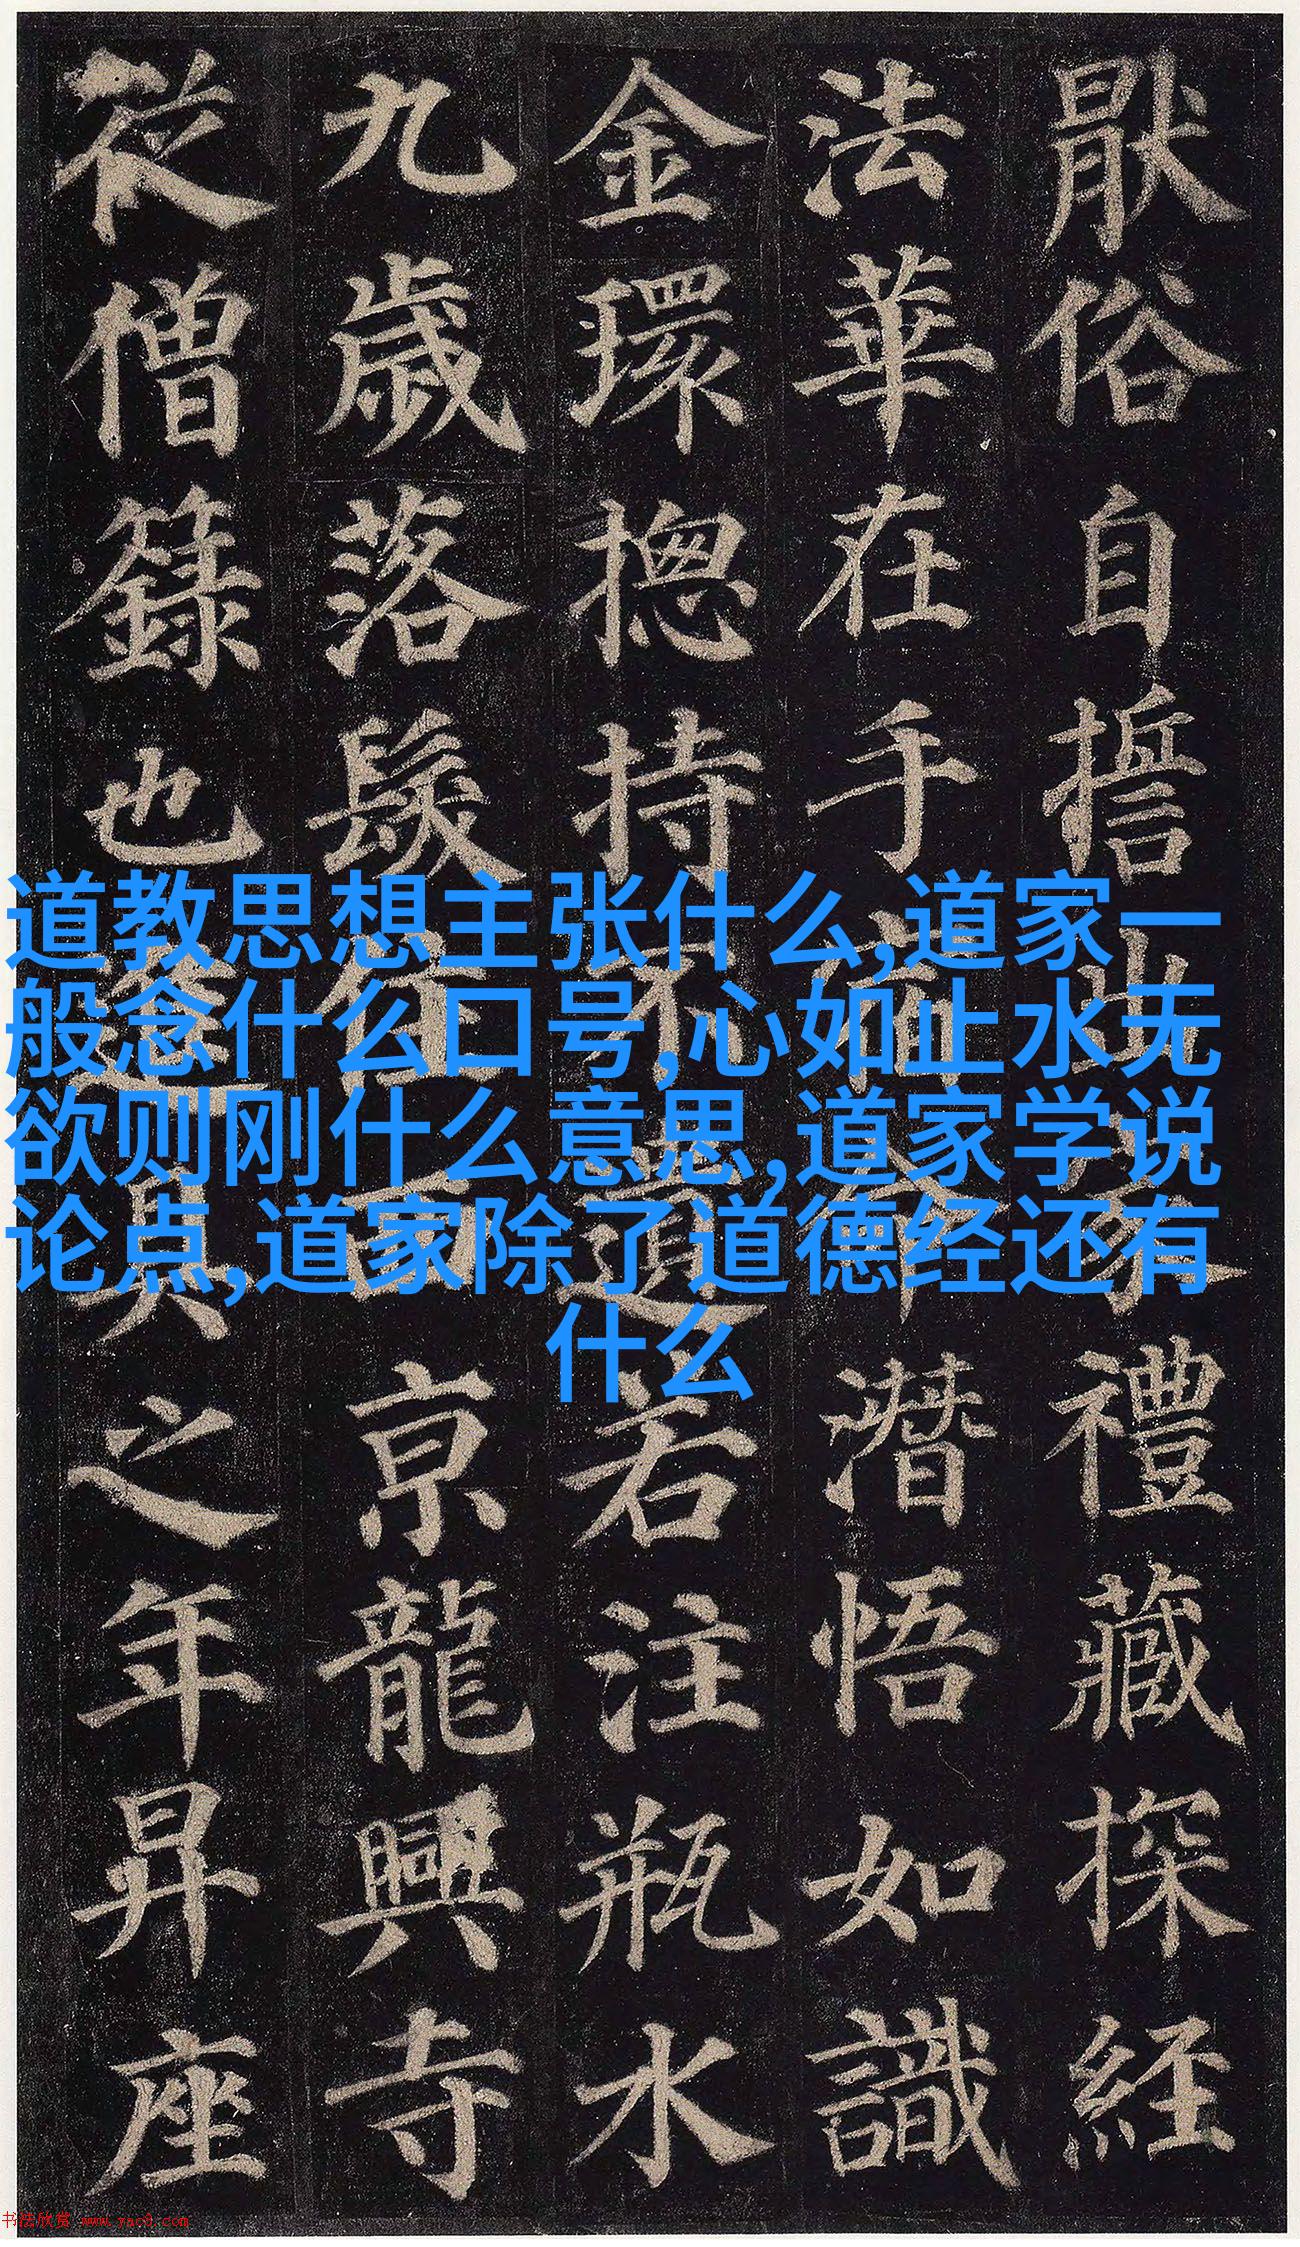 猒俗自誓出家禮藏探經
法華在手宿命潛悟如識
金環揔持不遺若注瓶水
九歲落髮住西京龍興寺
從僧籙也進具之年昇座
道教思想主张什么,道家一
般念什么口号,心如止水无
欲则刚什么意思,道家学说
论点,道家除了道德经还有
什么
书法欣赏 www.yac8.com